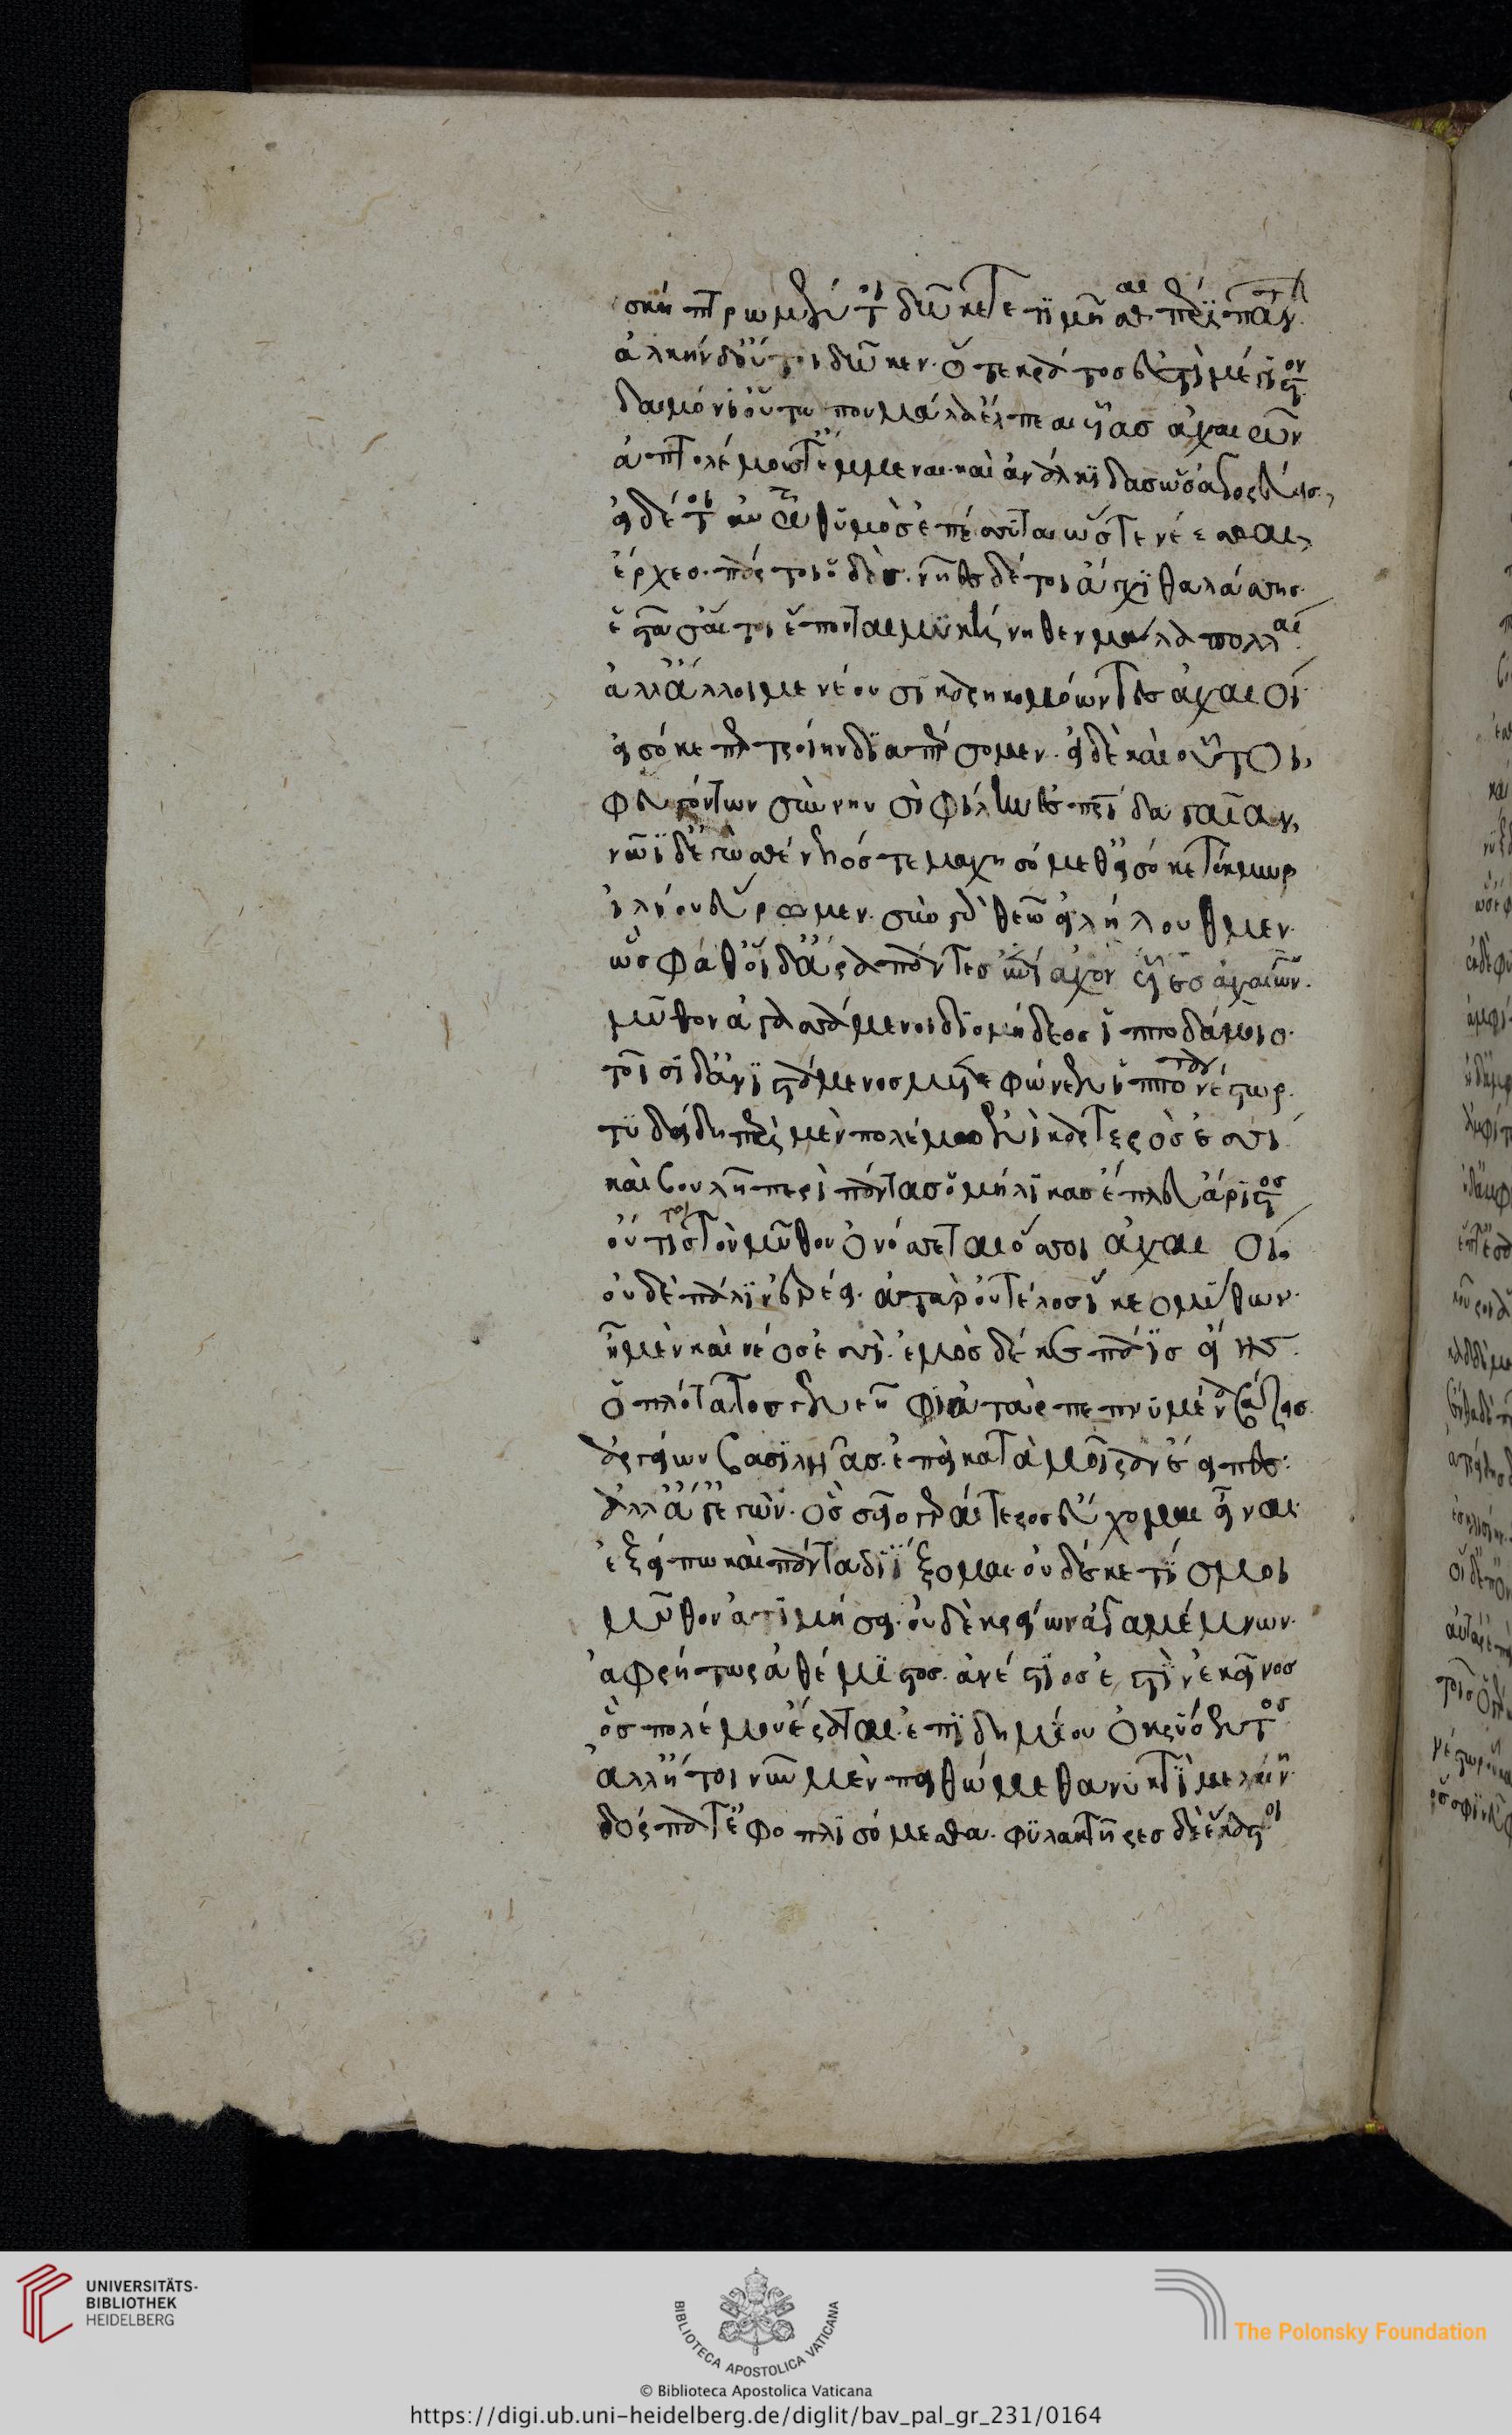 σκήπτρω μέν τοι δῶκε τετιμῆσθαι περὶ πάντων.
ἀλκὴν δ' οὔ τοι δῶκεν. ὅ τε κράτος ἐστὶ μέγιστον
δαιμόνι' οὕτω που μάλα ἔλπεαι υἷας ἀχαιῶν
ἀπτολέμους τ' ἔμμεναι καὶ ἀνάλκιδας ὡς ἀγορεύεις,
εἰ δέ τοι αὐτῶ θυμὸς ἐπέσσυται ὥστε νέεσθαι,
ἔρχεο. πάρ τοι ὁδὸς. νῆες δέ τοι ἄγχι θαλάσσης.
ἑστᾶσ' αἵ τοι ἕπονται μυκήνηθεν μάλα πολλαί.
ἀλλ' ἄλλοι μενέουσι καρηκομόωντες ἀχαιοί.
εἰσόκε περ τροίην διαπέρσομεν. εἰ δὲ καὶ οὗτοι,
φευγόντων σὺν νηυσὶ φίλην ἐς πατρίδα γαῖαν,
νῶϊ δ' ἐγὼ σθένελός τε μαχησόμεθ' εἰσόκε τέκμωρ
ἰλίου εὕρωμεν. σὺν γὰρ θεῶ εἰλήλουθμεν.
ὣς ἔφαθ' οἱ δ' ἄρα πάντες ἐπίαχον υἷες ἀχαιῶν.
μῦθον ἀγασσάμενοι διομήδεος ἱπποδάμοιο.
τοῖσι δ' ἀνιστάμενος μετεφώνεεν ἱππότα νέστωρ.
τυδείδη περὶ μὲν πολέμω ἔνι καρτερὸς ἐσσι
καὶ βουλῆ περὶ πάντας ὁμήλικας ἔπλευ ἄριστος
οὔ τίς τοι τὸν μῦθον ὀνόσσεται ὅσσοι ἀχαιοί.
οὐδὲ πάλιν ἐρέει. ἀτὰρ οὐ τέλος ἵκεο μύθων.
ἦ μὲν καὶ νέος ἐσσὶ. ἐμὸς δέ κε πάϊς εἴης.
ὁπλότατος γενεῆφι ἀτὰρ πεπνυμένα βάζεις.
ἀργείων βασιλῆας. ἐπεὶ κατὰ μοῖραν ἔειπες.
ἀλλ' ἄγ' ἐγὼν. ὃς σεῖο γεραίτερος εὔχομαι εἶναι.
ἐξείπω καὶ πάντα διΐξομαι οὐδέ κέ τίς μοι
μῦθον ἀτιμήσει. οὐδὲ κρείων ἀγαμέμνων.
ἀφρήτωρ ἀθέμιστος. ἀνέστιος ἐστὶν ἐκεῖνος
ὃς πολέμου ἔραται ἐπιδημίου ὀκρυόεντος
ἀλλ' ἤτοι νῦν μὲν πειθώμεθα νυκτὶ μελαίνη.
δόρπα τ' ἐφοπλισόμεσθα. φυλακτῆρες δὲ ἕκαστοι
UNIVERSITÄTS-
BIBLIOTHEK
HEIDELBERG
BIBLIOTECA APOSTOLICA VATICANA
The Polonsky Foundation
© Biblioteca Apostolica Vaticana
https://digi.ub.uni-heidelberg.de/diglit/bav_pal_gr_231/0164